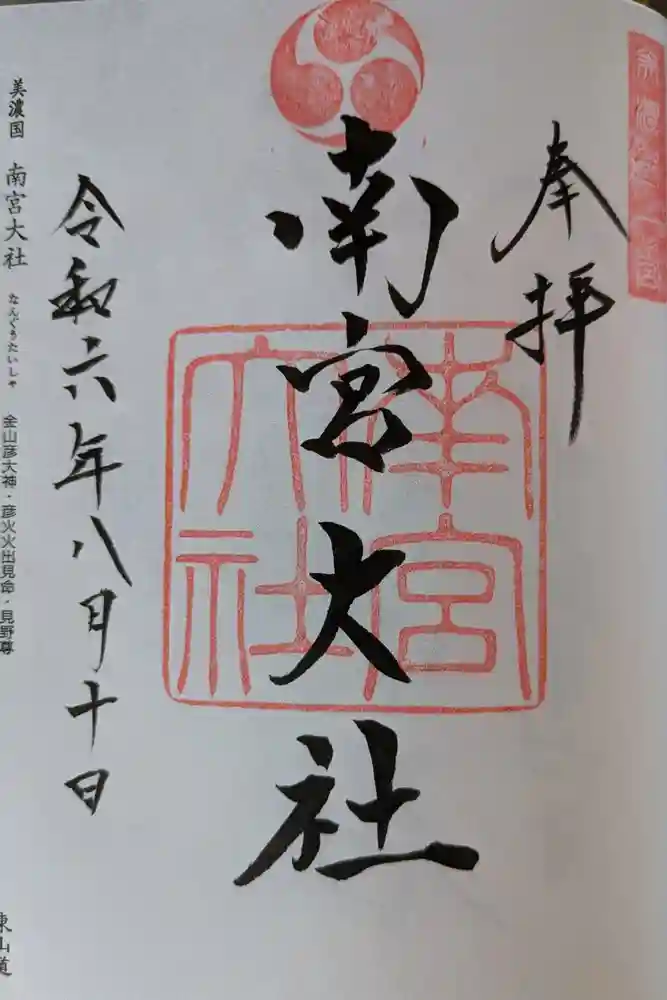 奉拝
南宮大社
南宮大社
令和六年八月十日
美濃国 南宮大社 なんぐうたいしゃ 金山彦大神・彦火火出見命・見野尊
東山道